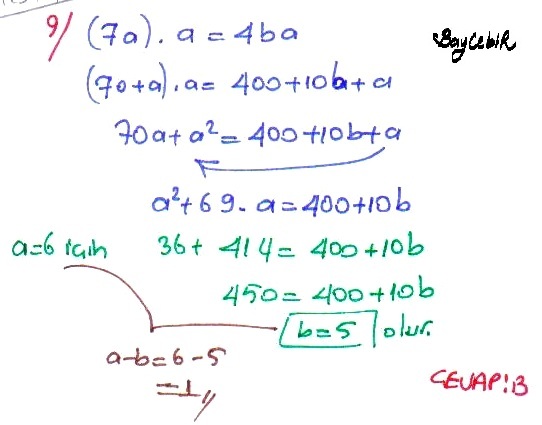 9/ (7a).a = 4ba
BayCebiR
(70+a).a = 400+10b+a
70a+a² = 400+10b+a
a²+69.a = 400+10b
a=6 için 36+ 414 = 400+10b
450 = 400+10b
b=5 olur.
a-b=6-5
=1,,
CEVAP:B